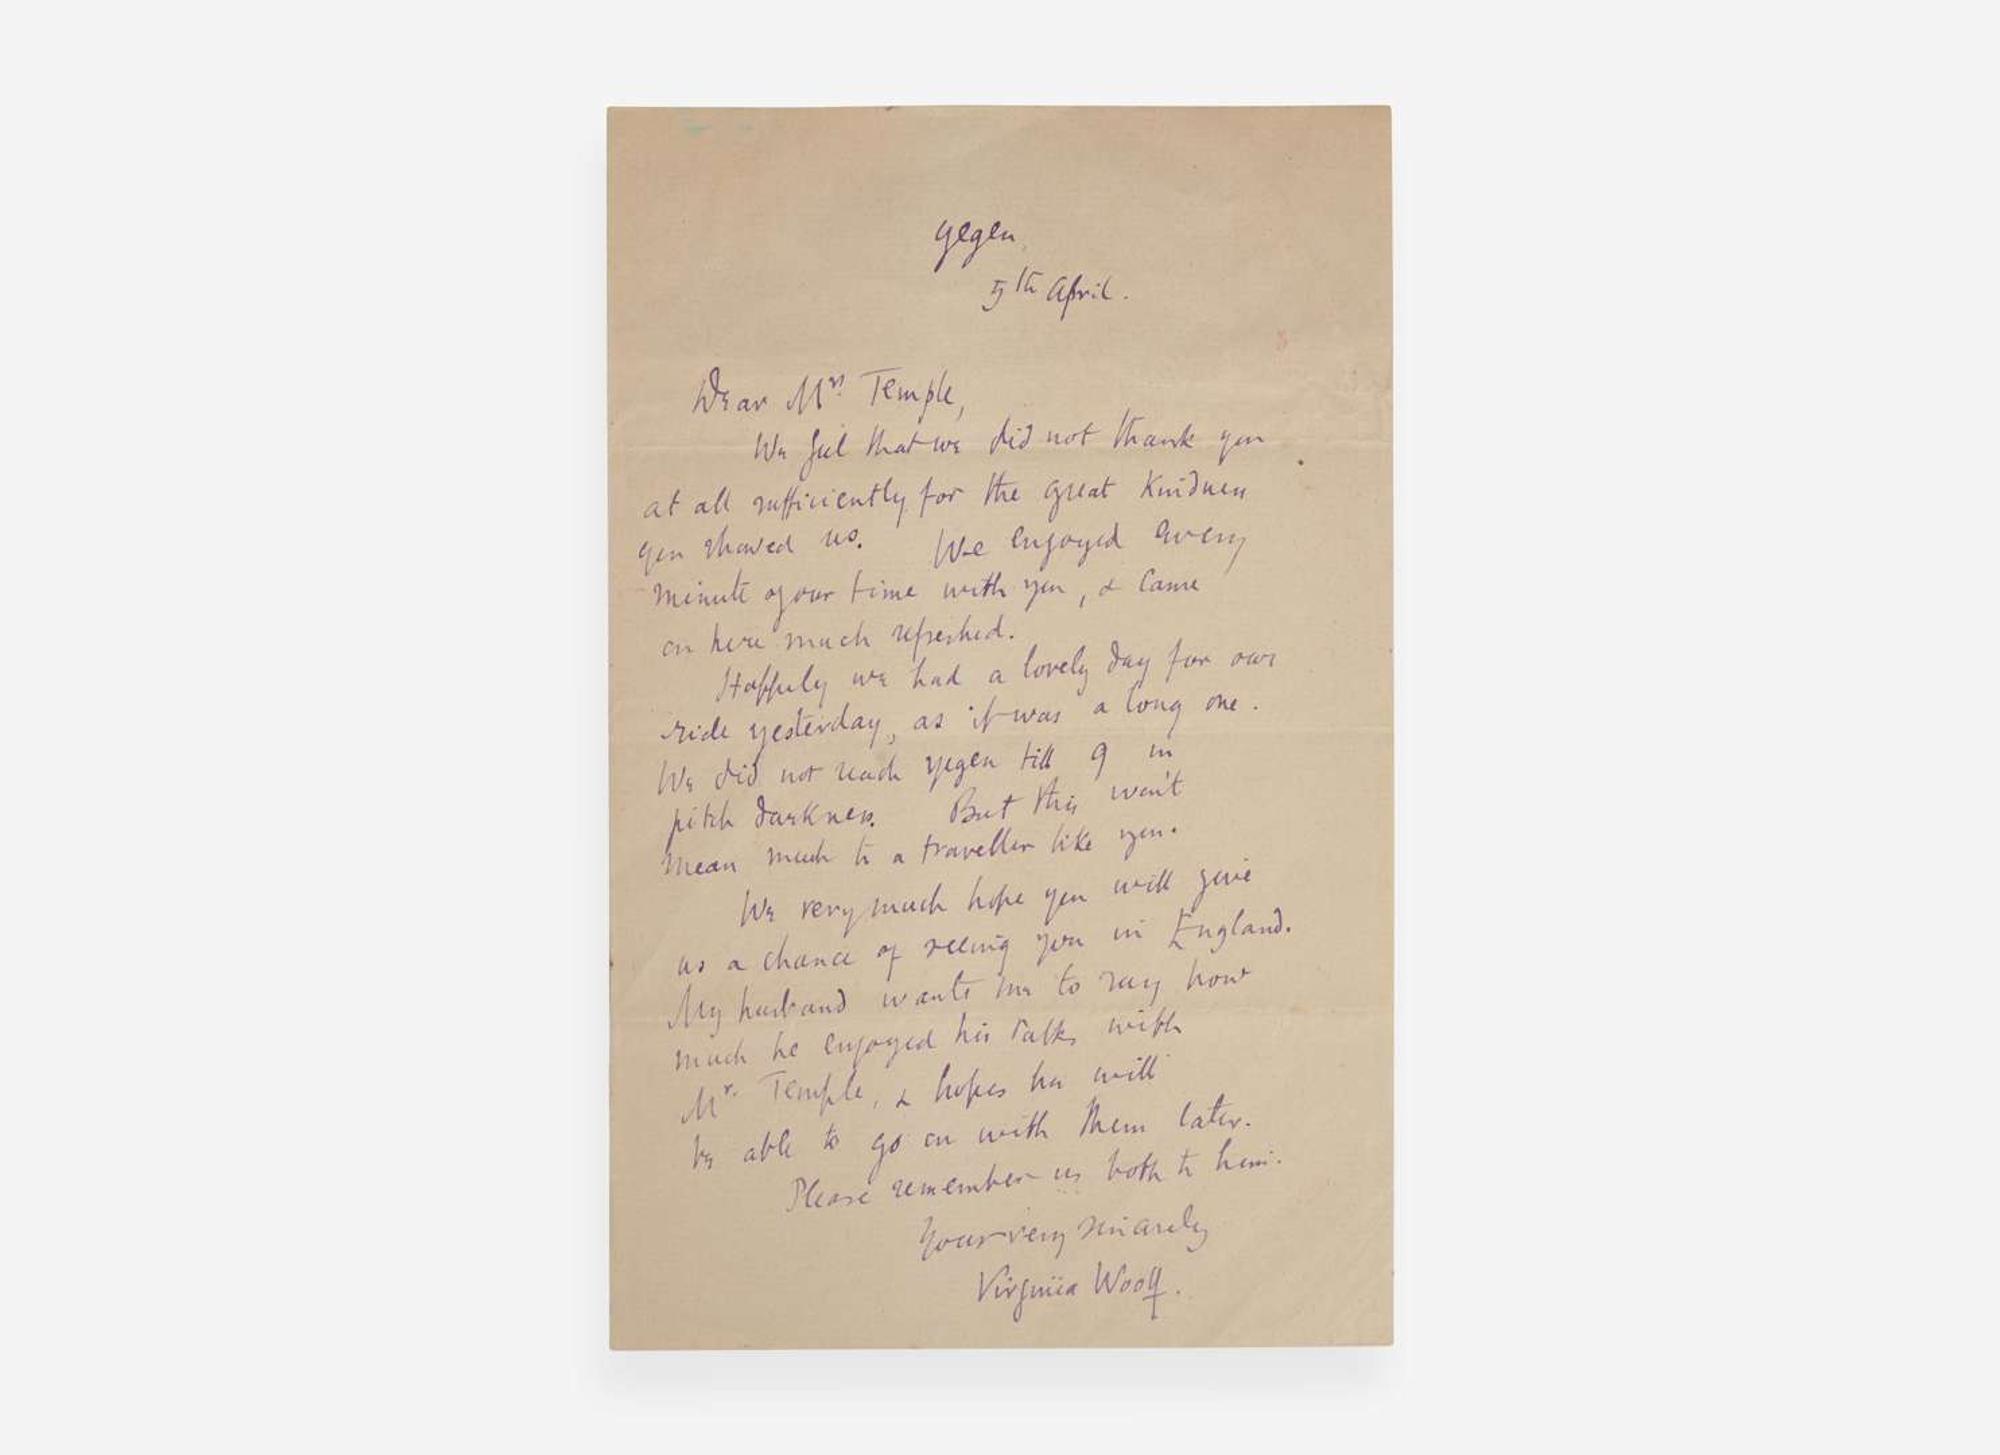 Yegen,
5th April.
Dear Mrs. Temple,
We feel that we did not thank you
at all sufficiently for the great kindness
you showed us. We enjoyed every
minute of our time with you, & came
on here much refreshed.
Happily we had a lovely day for our
ride yesterday, as it was a long one.
We did not reach Yegen till 9 in
pitch darkness. But this won't
mean much to a traveller like you.
We very much hope you will give
us a chance of seeing you in England.
My husband wants me to say how
much he enjoyed his talks with
Mr. Temple, & hopes he will
be able to go on with them later.
Please remember us both to him.
Your very sincerely
Virginia Woolf.